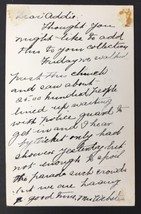 Dear Addie
Thought you
might like to add
this to your collection
Friday we walked
the church
and saw about
hundred People
lined up waiting
with Police guards to
get in and I hear
by ticket only had
showers yesterday but
not enough to spoil
the parade such crowds
but we are having
good time, Mrs